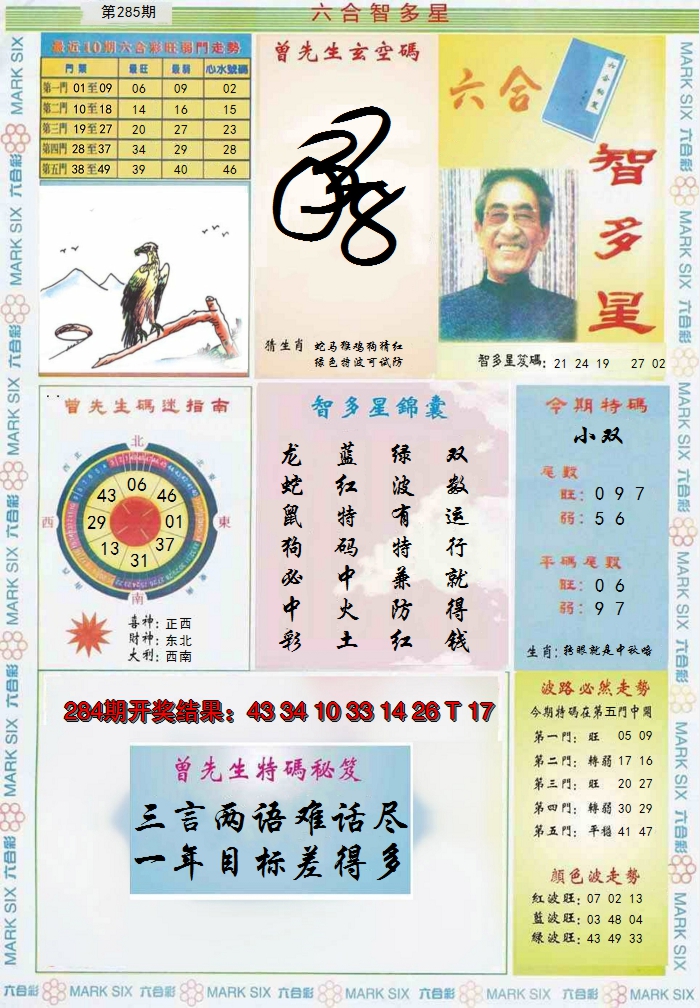 第285期
六合智多星
最近10期六合彩旺弱門走勢
門類 最旺 最弱 心水號碼
第一門 01至09 06 09 02
第二門 10至18 14 16 15
第三門 19至27 20 27 23
第四門 28至37 34 29 28
第五門 38至49 39 40 46
曾先生玄空碼
猜生肖 蛇马猴鸡狗猜红
绿色特波可试防
六合
智多星
智多星笈碼: 21 24 19 27 02
曾先生碼迷指南
北
西
東
南
06
46
01
37
31
13
29
43
喜神: 正西
財神: 东北
大利: 西南
智多星錦囊
龙蛇鼠狗必中彩
蓝红特码中火土
绿波有特兼防红
双数运行就得钱
今期特碼
小双
尾數
旺: 0 9 7
弱: 5 6
平碼尾數
旺: 0 6
弱: 9 7
生肖: 转眼就是中秋喏
284期开奖结果: 43 34 10 33 14 26 T 17
曾先生特碼秘笈
三言两语难话尽
一年目标差得多
波路必然走勢
今期特碼在第五門中開
第一門: 旺 05 09
第二門: 轉弱 17 16
第三門: 旺 20 27
第四門: 轉弱 30 29
第五門: 平穩 41 47
顏色波走勢
紅波旺: 07 02 13
藍波旺: 03 48 04
綠波旺: 43 49 33
MARK SIX 六合彩